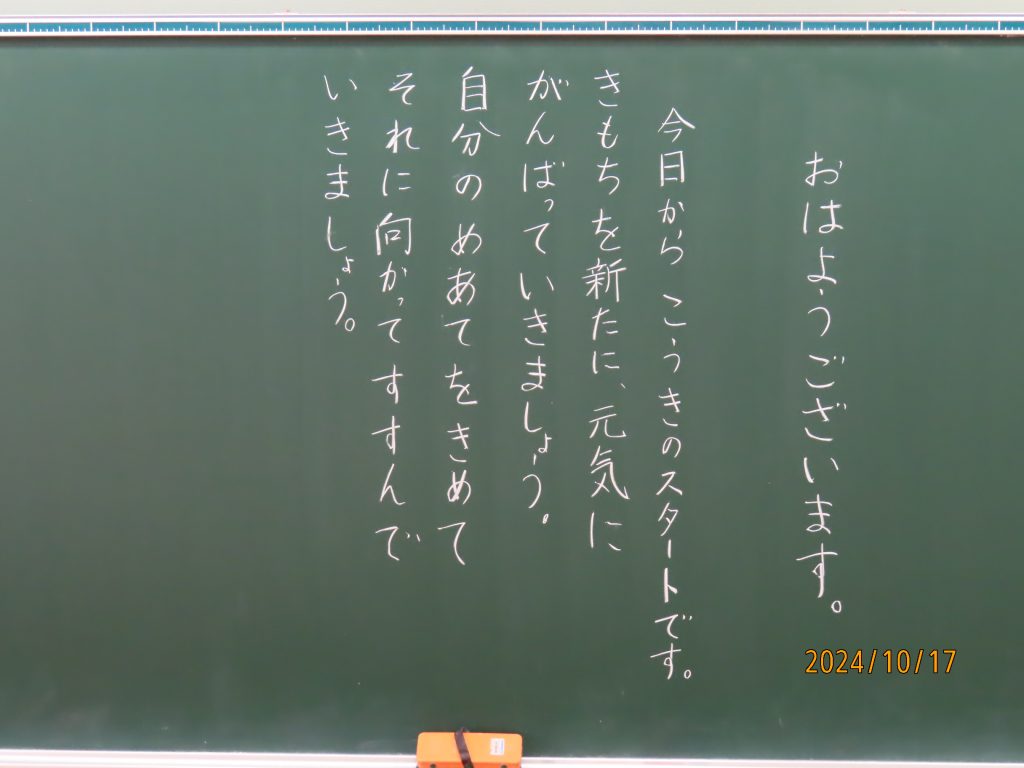 おはようございます。
今日からこうきのスタートです。
きもちを新たに、元気に
がんばっていきましょう。
自分のめあてをきめて
それに向かってすすんで
いきましょう。
2024/10/17